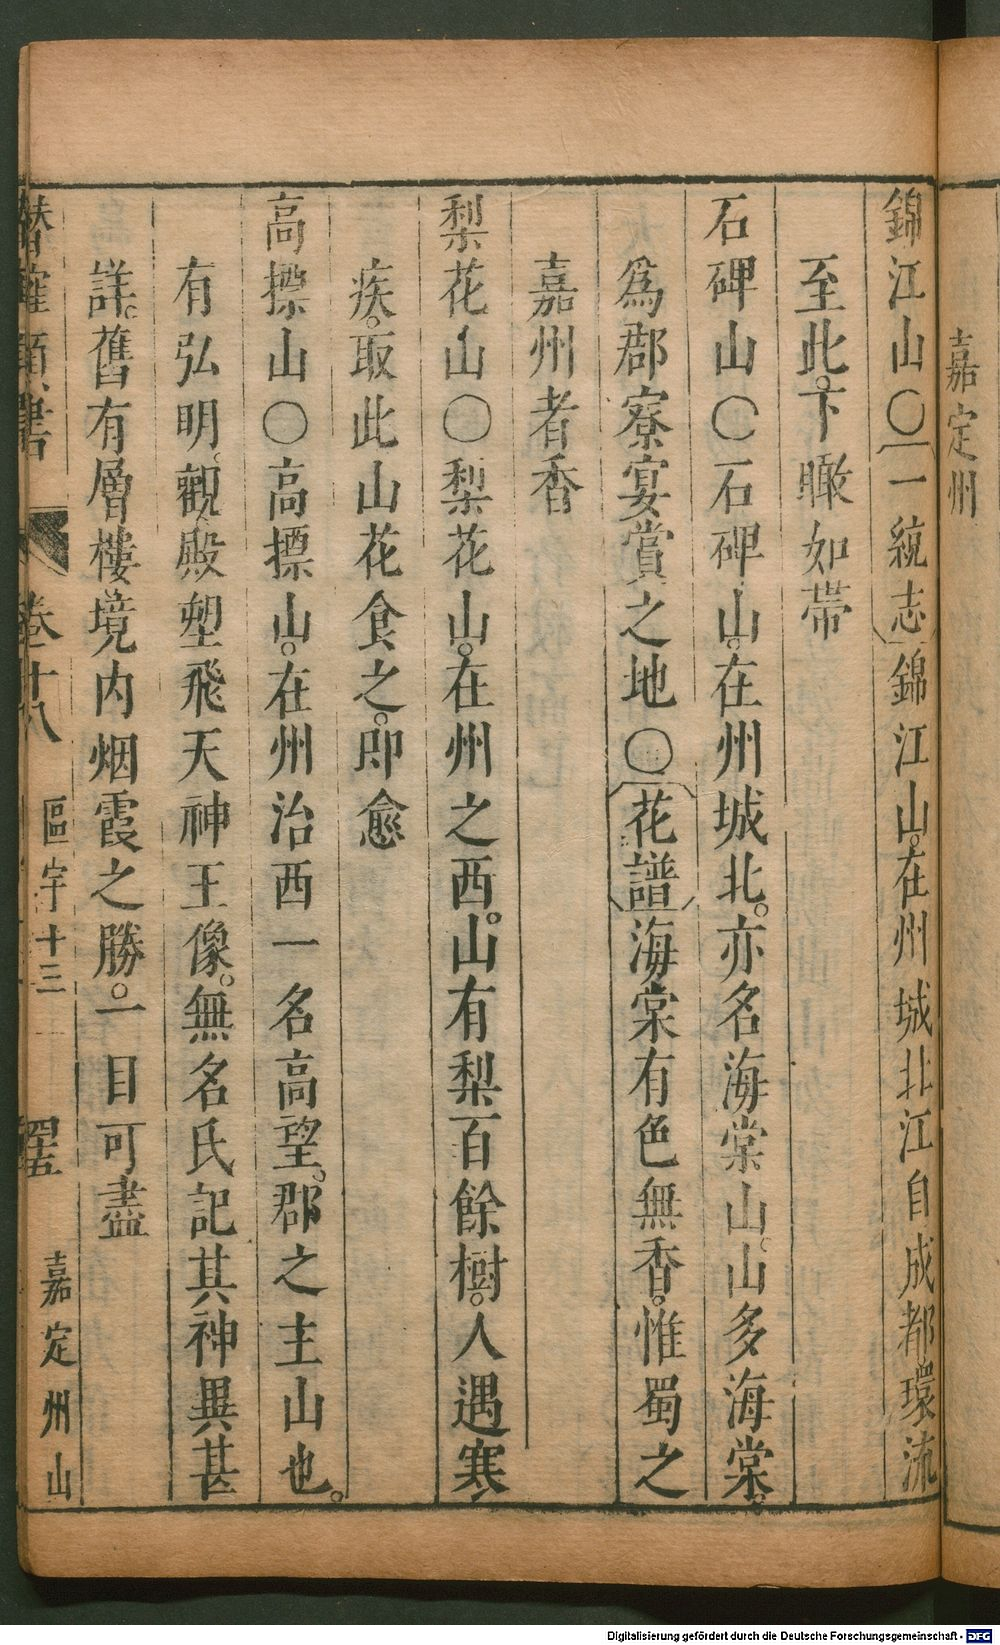 嘉定州
錦江山〇一統志錦江山。在州城北江自成都環流
至此。下瞰如帶
石碑山〇石碑山。在州城北。亦名海棠山。山多海棠。
爲郡寮宴賞之地〇花譜海棠有色無香。惟蜀之
嘉州者香
梨花山〇梨花山。在州之西。山有梨百餘樹。人遇寒
疾。取此山花食之。即愈
高摽山〇高摽山。在州治西一名高望。郡之主山也。
有弘明觀殿塑飛天神王像。無名氏記其神異甚
詳。舊有層樓境內烟霞之勝。一目可盡
類書 卷十八 區宇十三 四五 嘉定州山
Digitalisierung gefördert durch die Deutsche Forschungsgemeinschaft - DFG